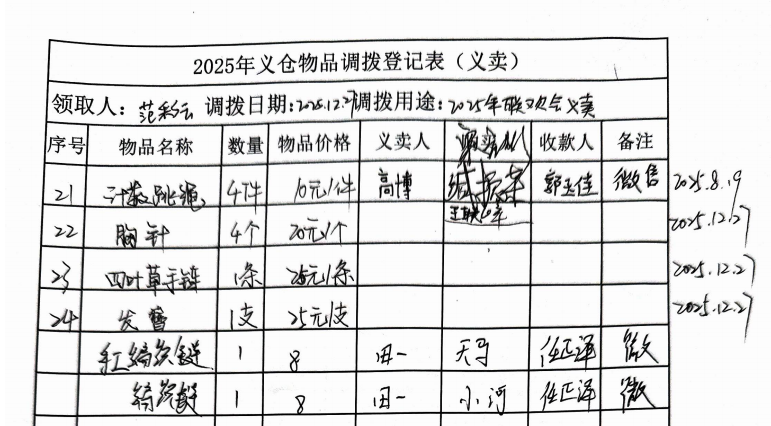 2025年义仓物品调拨登记表（义卖）
领取人：范彩云 调拨日期：2025.12.27 调拨用途：2025年联欢会义卖
序号 物品名称 数量 物品价格 义卖人 收款人 备注
21 计数跳绳 4件 10元/件 高博 郭玉佳 微信 2025.8.19
22 胸针 4个 20元/个 2025.12.27
23 四叶草手链 1条 25元/条 2025.12.27
24 发簪 1支 25元/支 2025.12.27
红 1 8 田一 天马 任正泽 微
1 8 田一 小河 任正泽 微